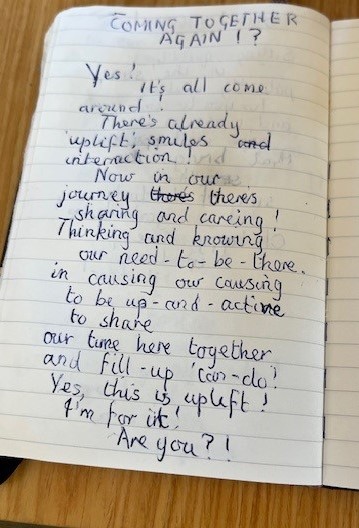 COMING TOGETHER
AGAIN!?
Yes!
It's all come
around!
There's already
'uplift', smiles and
interaction!
Now in our
journey there's there's
sharing and careing!
Thinking and knowing
our need-to-be-there.
in causing our causing
to be up-and-active
to share
our time here together
and fill-up 'can-do'!
Yes, this is uplift!
I'm for it!
Are you?!